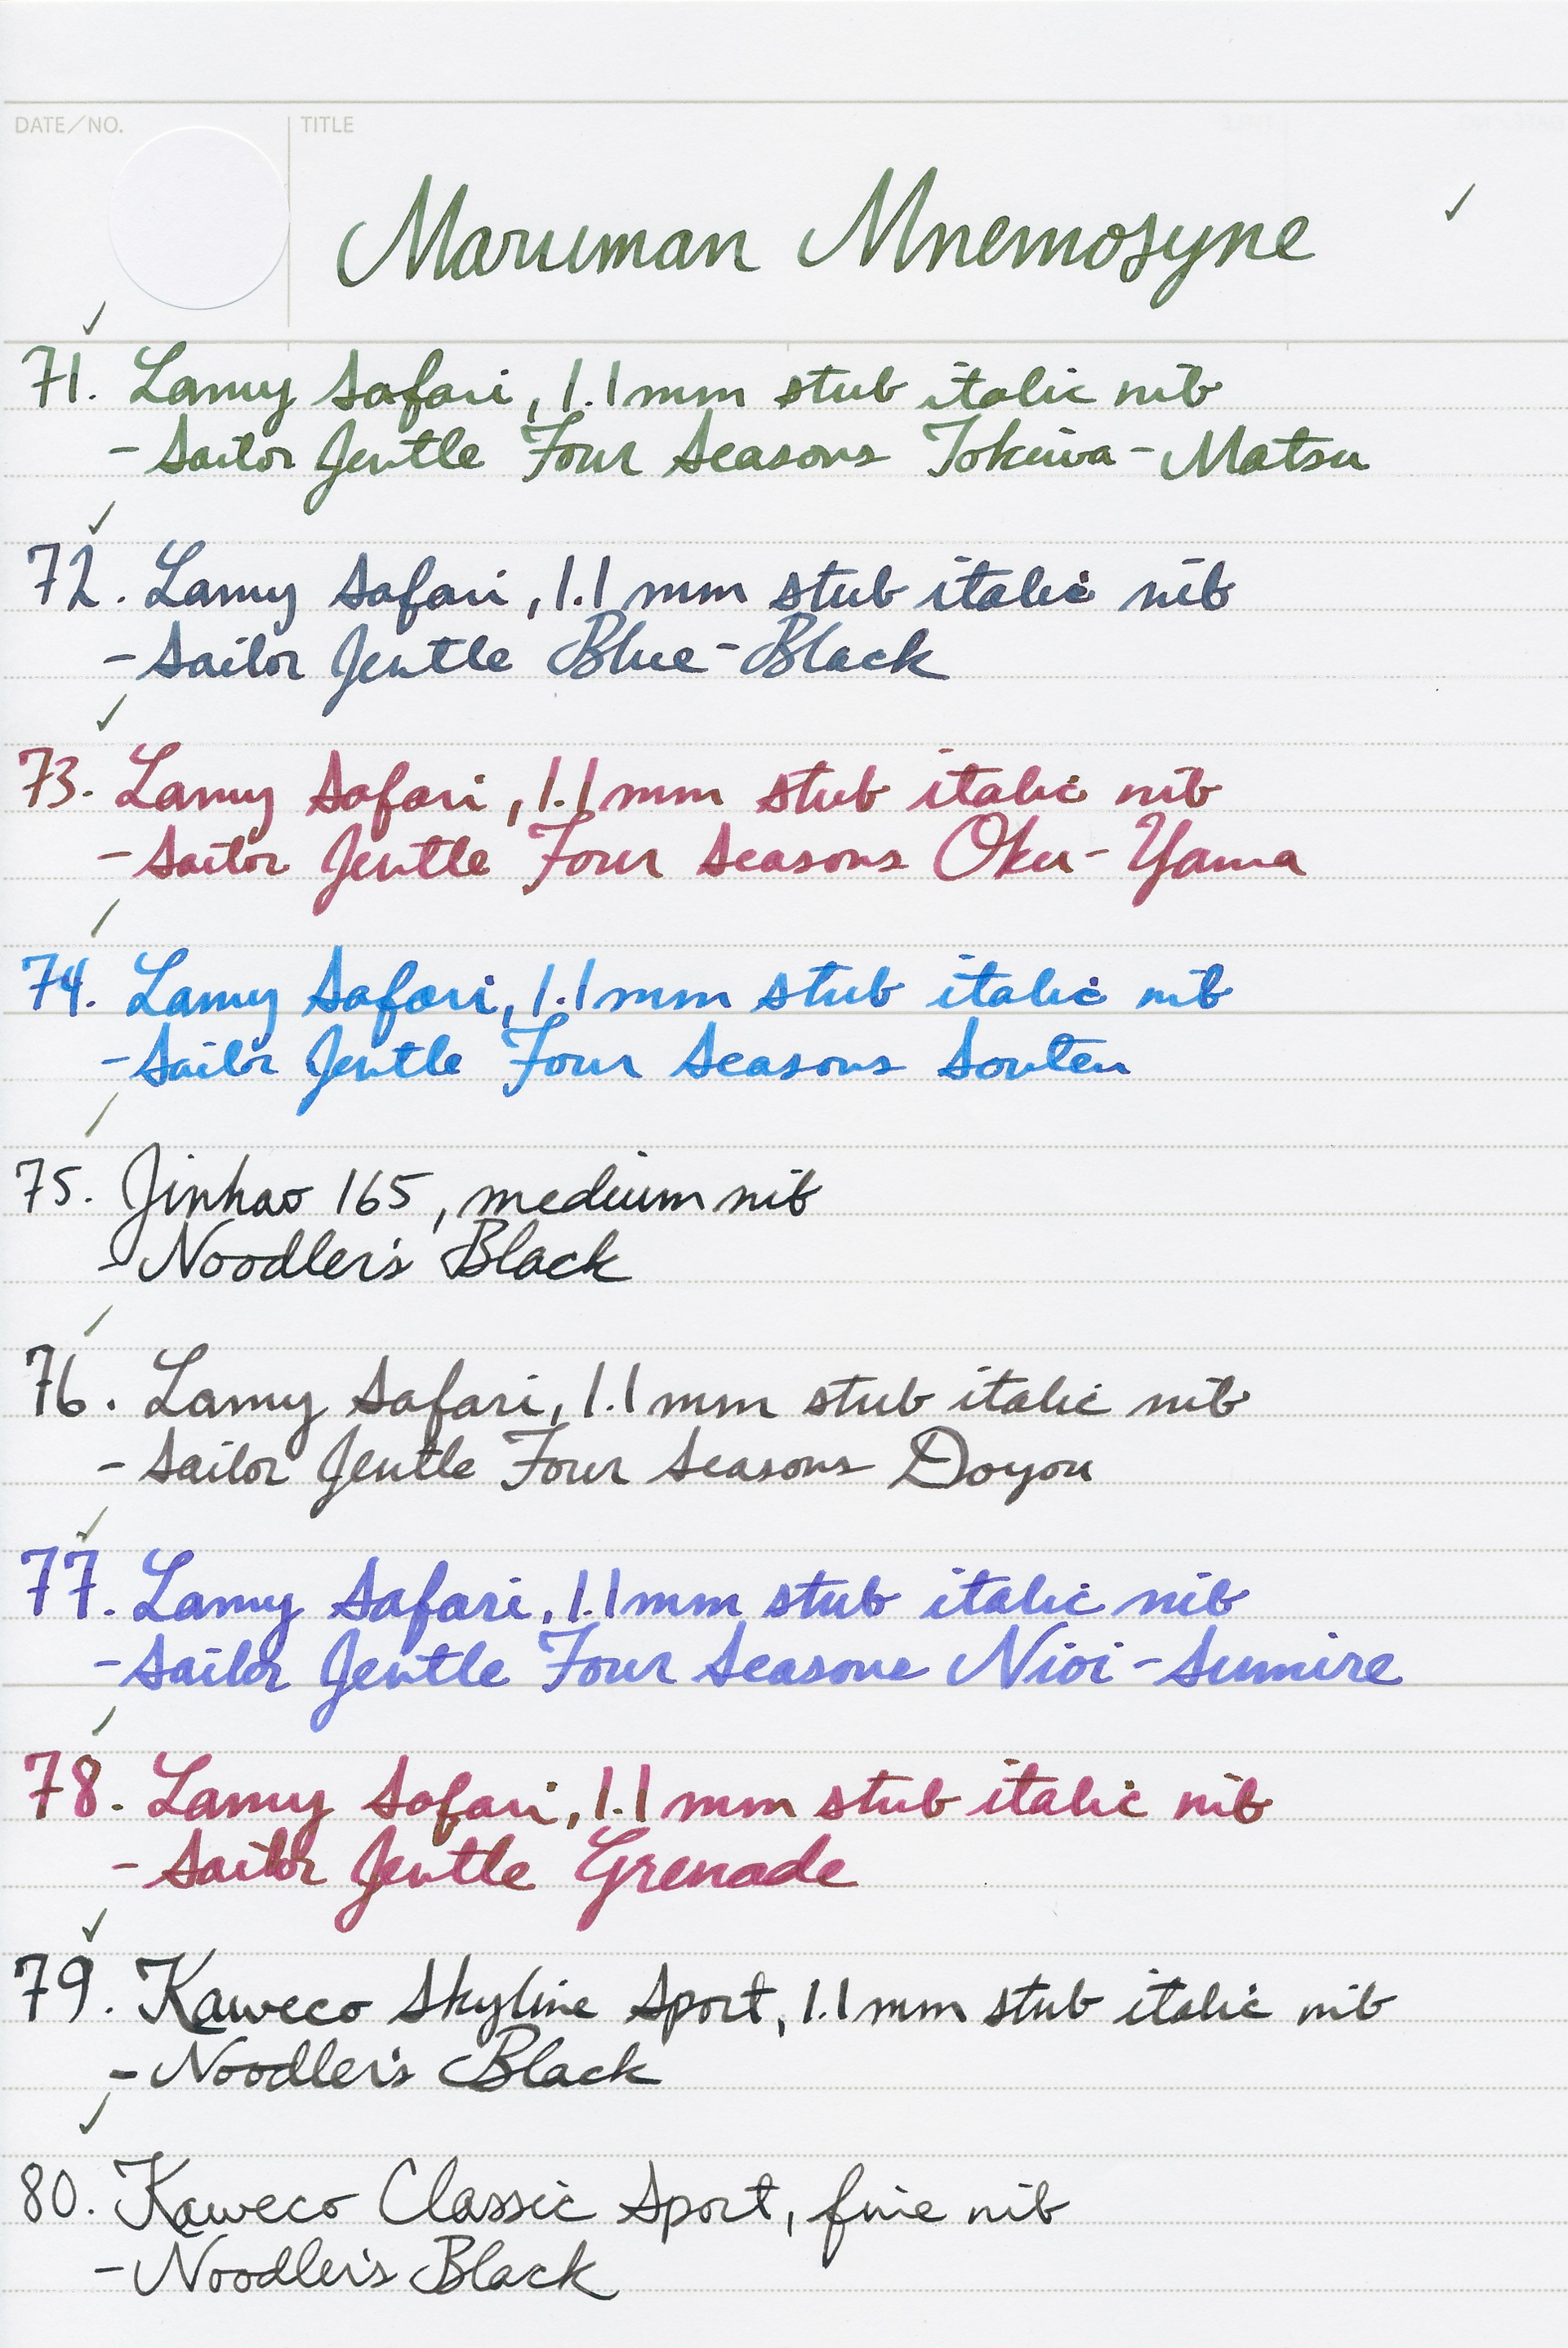 DATE/NO. TITLE
Maruman Mnemosyne ✓
✓
71. Lamy Safari, 1.1mm stub italic nib
- Sailor Jentle Four Seasons Tokiwa-Matsu
✓
72. Lamy Safari, 1.1mm stub italic nib
- Sailor Jentle Blue-Black
✓
73. Lamy Safari, 1.1mm stub italic nib
- Sailor Jentle Four Seasons Oku-Yama
✓
74. Lamy Safari, 1.1mm stub italic nib
- Sailor Jentle Four Seasons Souten
✓
75. Jinhao 165, medium nib
- Noodler's Black
✓
76. Lamy Safari, 1.1mm stub italic nib
- Sailor Jentle Four Seasons Doyou
✓
77. Lamy Safari, 1.1mm stub italic nib
- Sailor Jentle Four Seasons Nioi-Sumire
✓
78. Lamy Safari, 1.1mm stub italic nib
- Sailor Jentle Grenade
✓
79. Kaweco Skyline Sport, 1.1mm stub italic nib
- Noodler's Black
✓
80. Kaweco Classic Sport, fine nib
- Noodler's Black